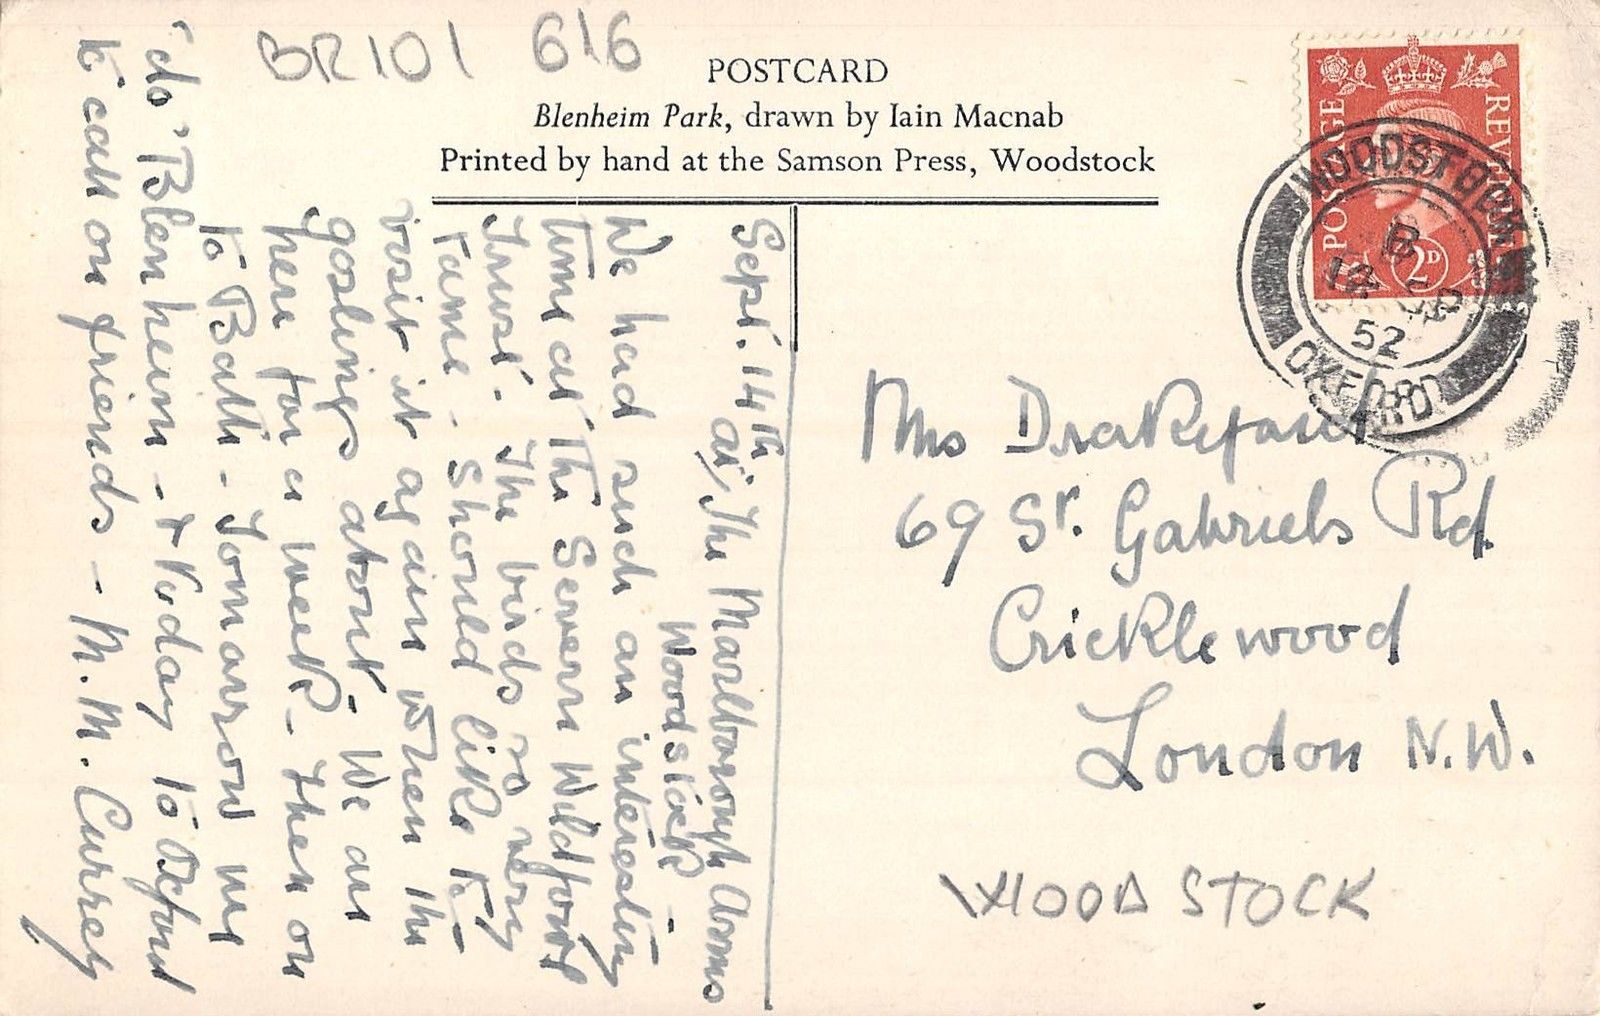 BR101 616
POSTCARD
Blenheim Park, drawn by Iain Macnab
Printed by hand at the Samson Press, Woodstock
POSTAGE REVENUE
2D
WOODSTOCK
B
52
OXFORD
Sept. 14th
at, The Marlborough Arms
Woodstock -
We had such an interesting
time at the Severn Wildfowl
Trust. The birds so very
tame. Should like to
visit it again when the
goslings about - We are
here for a week - then on
to Bath - Tomorrow we
'do' Blenheim - + today to Oxford
to call on friends - M. M. Currey
Mrs Drakeford
69 St. Gabriels Rd
Cricklewood
London N.W.
WOODSTOCK